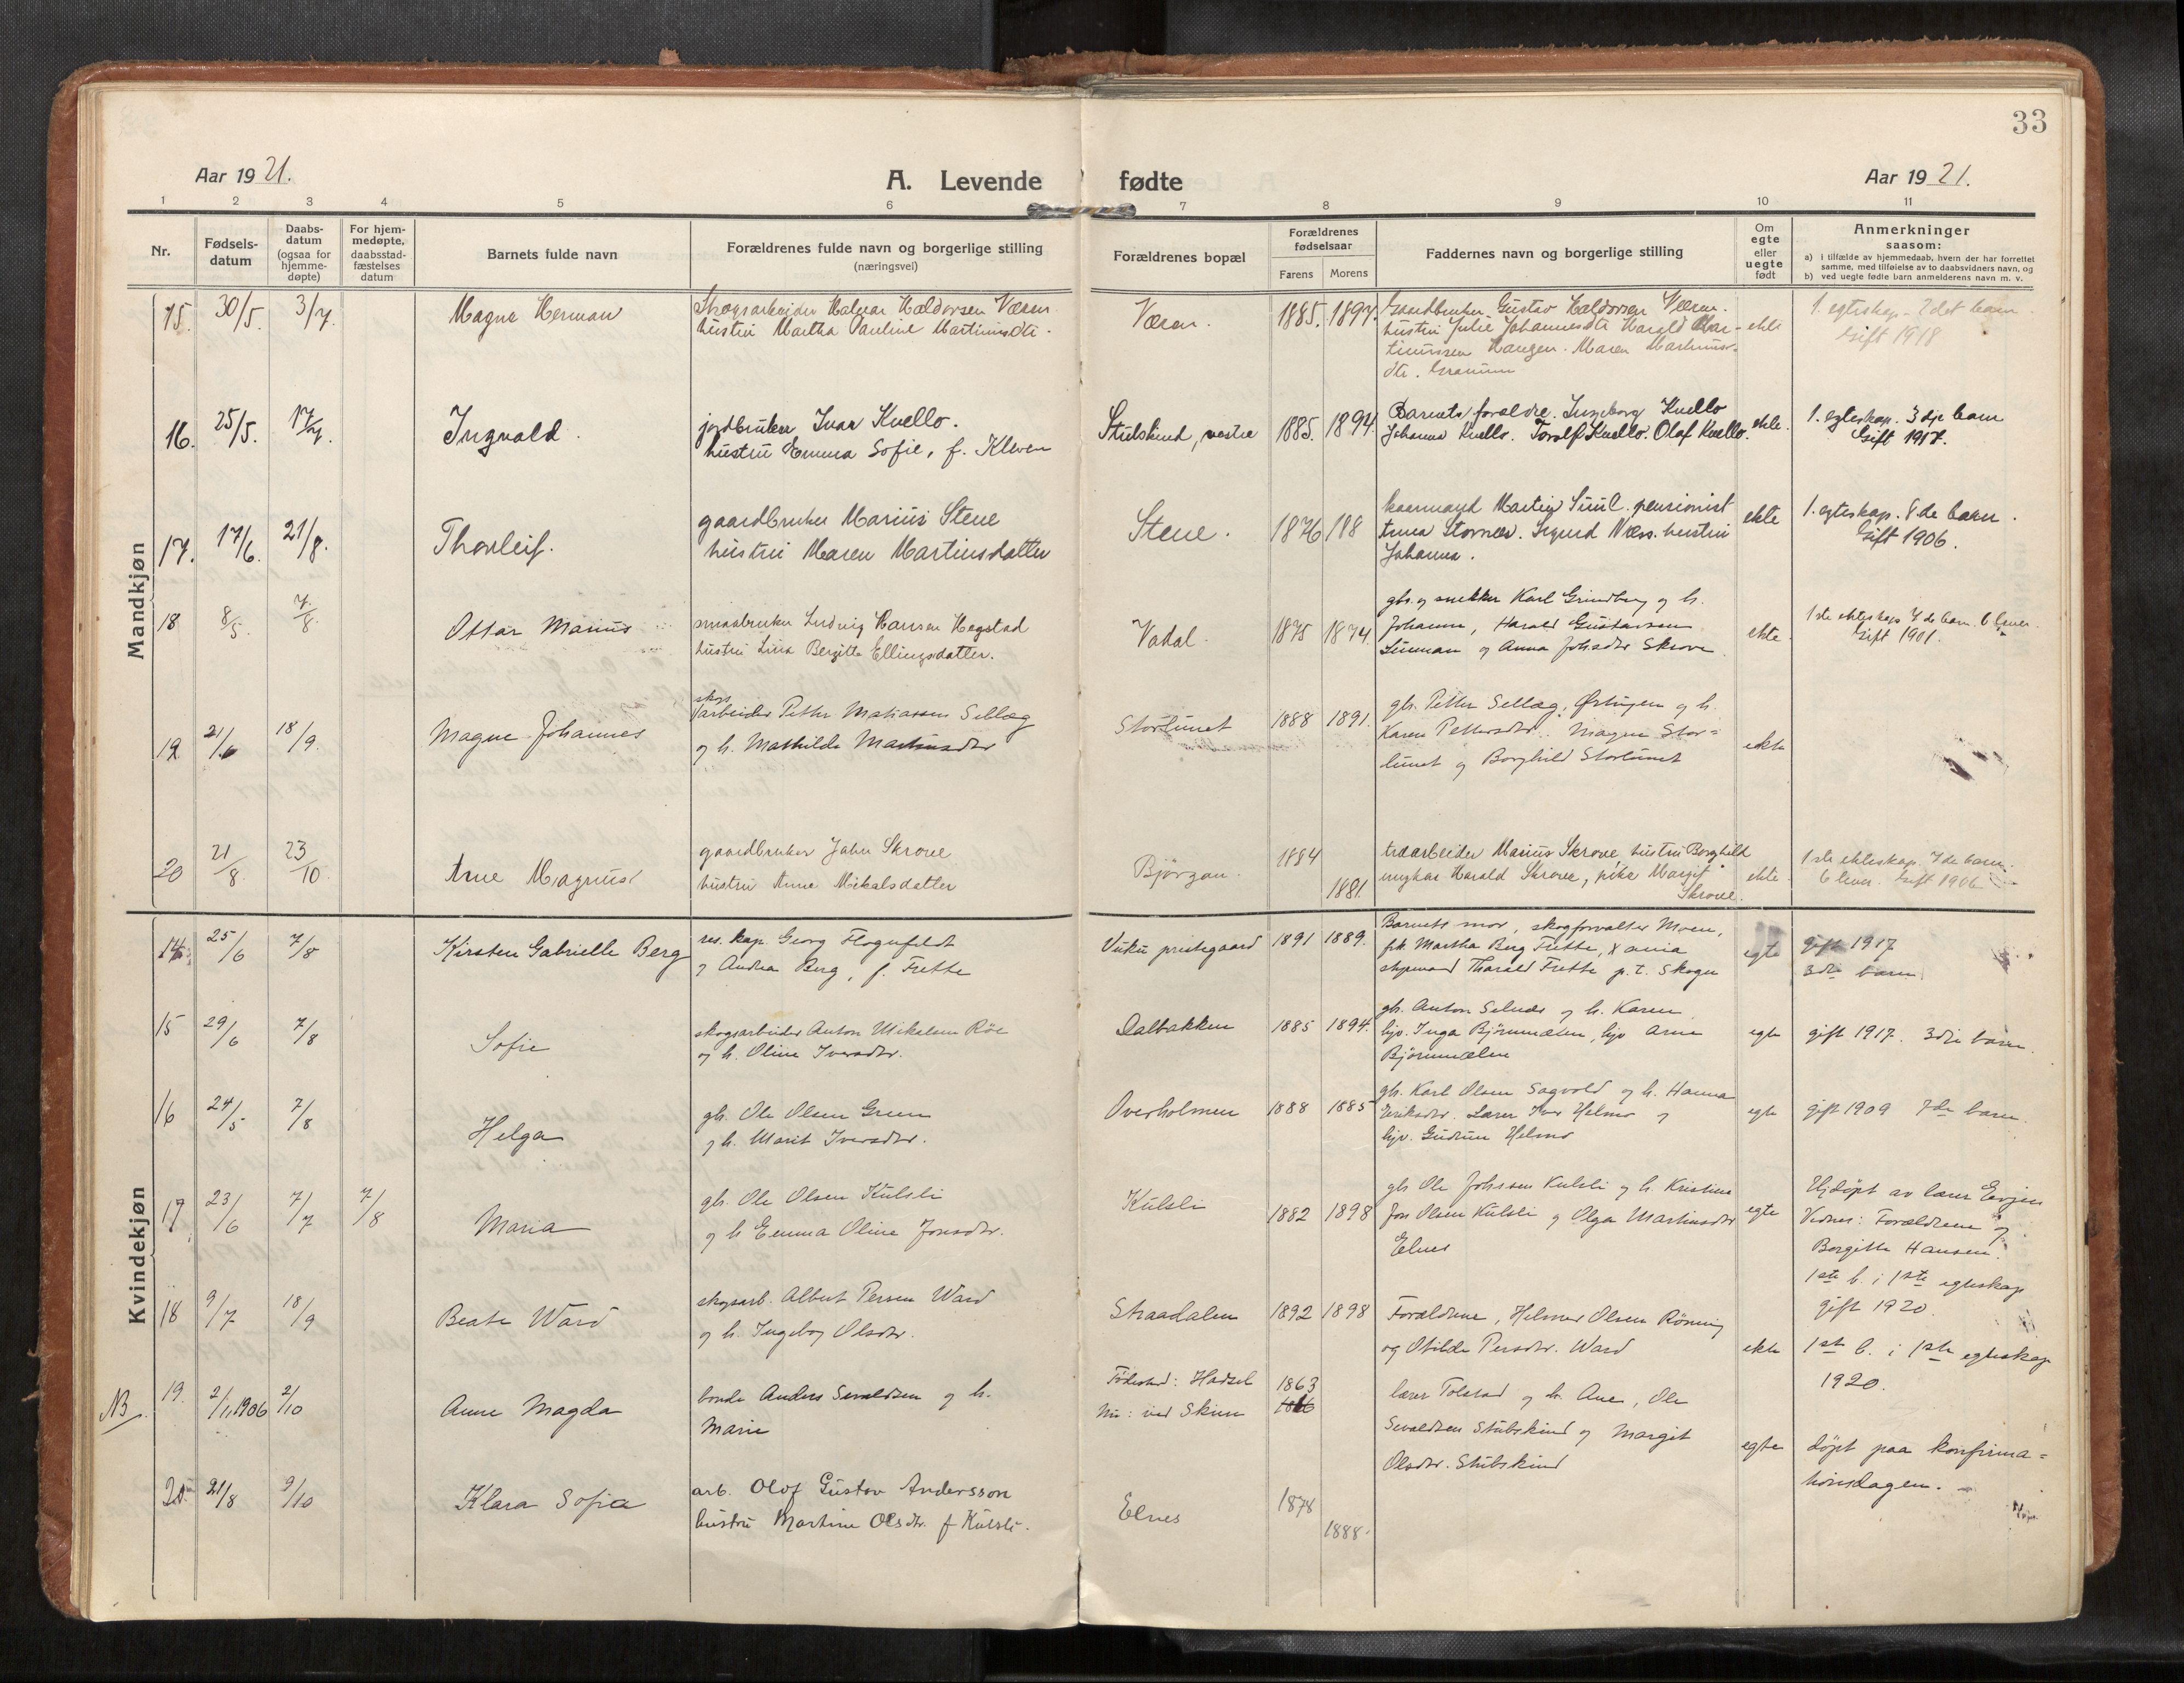 33
Aar 1921.
A. Levende fødte
Aar 1921.
1 2 3 4 5 6 7 8 9 10 11
Nr.
Fødsels-
datum
Daabs-
datum
(ogsaa for
hjemme-
døpte)
For hjem-
medøpte,
daabsstad-
fæstelses
datum
Barnets fulde navn
Forældrenes fulde navn og borgerlige stilling
(næringsvei)
Forældrenes bopæl
Forældrenes
fødselsaar
Farens Morens
Faddernes navn og borgerlige stilling
Om
egte
eller
uegte
født
Anmerkninger
saasom:
a) i tilfælde av hjemmedaab, hvem der har forrettet
samme, med tilføielse av to daabsvidners navn, og
b) ved uegte fødte barn anmelderens navn m. v.
Mandkjøn
15. 30/5. 3/7. Magne Herman
Skogsarbeider Halvar Haldorsen Væren
hustru Martha Pauline Martinusdtr.
Væren. 1885. 1897.
Gaardbruker Gustav Haldorsen Væren.
hustru Julie Johannesdtr Harald Mar-
tinussen Haugen. Maren Martinus-
dtr.
ekte
1. egteskap - 2det barn.
Gift 1918
16. 25/5. 17/7. Ingvald.
jordbruker Ivar Kvello.
hustru Emma Sofie, f. Kleven
Stubskind, vestre 1885. 1894.
Barnets forældre. Ingeborg Kvello
Johanna Kvello. Toralf Kvello. Olaf Kvello.
ekte.
1. egteskap. 3dje barn
Gift 1917.
17. 17/6. 21/8. Thorleif.
gaardbruker Marius Stene
hustru Maren Martinsdatter
Stene. 1876 188
kaarmand Martin Suul. pensionist
Anna Stornes. Sigurd Næss. hustru
Johanna.
ekte
1. egteskap. 8de barn.
Gift 1906.
18 8/5. 7/8 Ottar Marius
smaabruker Ludvig Hansen Hegstad
hustru Lina Bergitte Ellingsdatter.
Vadal. 1875 1874.
gbr. og snekker Karl Grindberg og h.
Johanna, Harald Gustavsen
og Anna Johsdtr Skrove
ekte.
1ste ekteskap 7de barn. 6 lever.
Gift 1901.
19 21/6 18/9. Magne Johannes
skogs
arbeider Petter Matiassen Sellæg
og h. Mathilde Martinusdtr
Storlunet 1888 1891.
gb. Petter Sellæg, og h.
Karen Pettersdtr. Magne Stor=
lunet og Borghild Storlunet
ekte
20 21/8. 23/10. Arne Magnus
gaardbruker John Skrove
hustru Anne Mikalsdatter
Bjørgan. 1884
1881.
træarbeider Marius Skrove, hustru Borghild
ungkar Harald Skrove, pike Margit
Skrove.
ekte.
1ste ekteskap. 7de barn.
6 lever. Gift 1906
Kvindekjøn
14 25/6 7/8 Kirsten Gabrielle Berg
res. kap. Georg Flognfeldt
og Andrea Berg, f. Frette
Vuku prestegaard 1891 1889.
Barnets mor, skogforvalter Moen,
frk Martha Berg Frette, Xania
styrmand Tharald Frette p.t. Skogn
egte
gift 1917
3die barn
15 29/6 7/8 Sofie
skogsarbeider Anton Mikelsen Röe
og h. Oline Iversdtr.
Dalbakken 1885 1894.
gb. Anton Selnes og h. Karen
hjv. Inga Björnmælen, hjv Arne
Björnmælen
egte
gift 1917. 3die barn.
16 24/5 7/8 Helga
gb. Ole Olsen Green
og h. Marit Iversdtr.
Overholmen 1888 1885
gb. Karl Olsen Sagvold og h. Hanna
Eriksdtr. Lærer Iver Helmo og
hjv. Gudrun Helmo
egte
gift 1909 7de barn.
17 23/6 7/7 7/8 Maria
gb. Ole Olsen Kulsli
og h Emma Oline Jonsdtr.
Kulsli 1882 1898
gb Ole Johnsen Kulsli og h. Kristine
Jon Olsen Kulsli og Olga Martinsdtr
Elnes
egte
Hjdöpt av lærer Evjen
Vidner: Forældrene og
Bergitte Hansen.
1ste b. i 1ste egteskap
gift 1920.
18 9/7 18/9 Beate Ward
skogsarb. Albert Persen Ward
og h. Ingeborg Olsdtr.
Straadalen 1892 1898
Forældrene, Helmer Olsen Röning
og Otilde Persdtr. Ward
ekte
1ste b. i 1ste egteskap
1920.
NB 19. 2/11 1906 2/10 Anne Magda
bonde Anders Sevaldsen og h.
Marie
Födested: Hadsel
nu: ved Skien
1863
lærer Tolstad og h. Ane, Ole
Sevaldsen Stubskind og Margit
Olsdtr. Stubskind
egte
döpt paa konfirma=
tionsdagen.
20 21/8 9/10 Klara Sofia
arb. Olof Gustav Andersson
hustru Martine Olsdtr. f Kulsli.
Elnes 1878
1888.